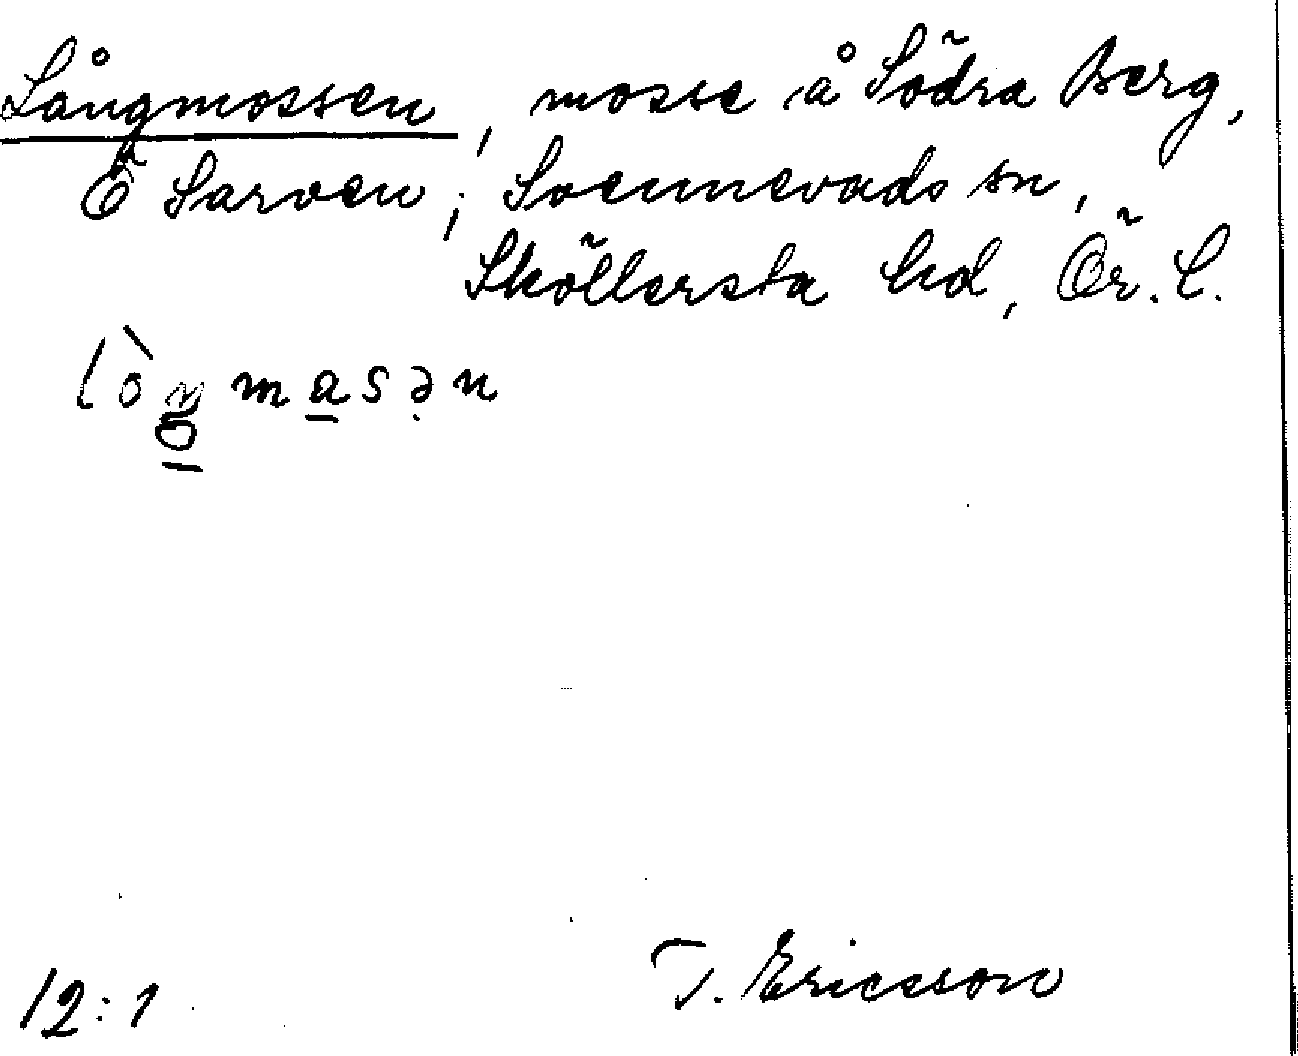 Långmossen, mosse å Södra Berg,
Ö Sarven; Svennevads sn,
Sköllersta hd, Ör. L.
lòŋmasən
12:1 T. Ericsson